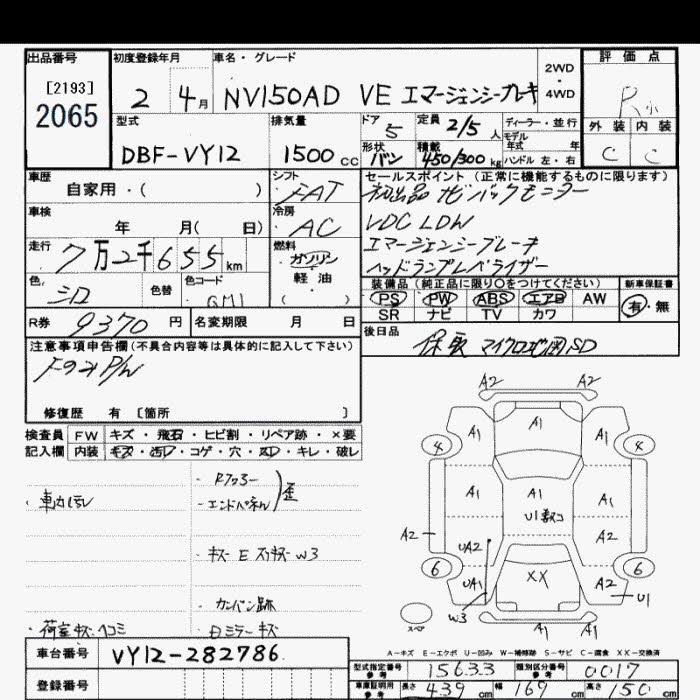 出品番号
[2193]
2065
初度登録年月
2 4月
車名・グレード
NV150AD VE エマージェンシーブレーキ
2WD
・
4WD
評価点
R
外装 内装
C C
型式
DBF-VY12
排気量
1500cc
ドア
5
定員
2/5人
形状
バン
積載
450/300kg
ディーラー・並行
モデル
年式 年
ハンドル 左・右
車歴
自家用・( )
シフト
FAT
車検
年 月( 日)
冷房
AC
走行
7万2千655km
燃料
ガソリン
軽油
( )
色
シロ
色替
色コード
QM1
R券
9370円
名変期限 月 日
セールスポイント(正常に機能するものに限ります)
初出品 ナビ バックモニター
VDC LDW
エマージェンシーブレーキ
ヘッドランプレベライザー
装備品(純正品に限り○をつけてください)
PS PW ABS エアB AW
SR ナビ TV カワ
新車保証書
有・無
後日品
保取 マイクロ地図SD
注意事項申告欄(不具合内容等は具体的に記入して下さい)
修復歴 有 [箇所 ]
検査員
記入欄
FW キズ・飛石・ヒビ割・リペア跡・×要
内装 キズ・汚レ・コゲ・穴・スレ・キレ・破レ
・Rフロアー
・エンドパネル
歪
・キズ E スリキズ W3
・カンバン跡
・荷室キズ・ヘコミ
・Bミラーキズ
A2 A2
A1
A1 A1
4 4
A1 A1 A1
U1数コ
A2 A2
UA2
6 6
UA1 XX A2
U1
W3
スペア
A1 A1
A-キズ E-エクボ U-凹み W-補修跡 S-サビ C-腐食 XX-交換済
車台番号
VY12-282786
登録番号
型式指定番号
参考
15633
類別区分番号
参考
0017
車庫証明用
参考
長さ 439cm 幅 169cm 高さ 150cm